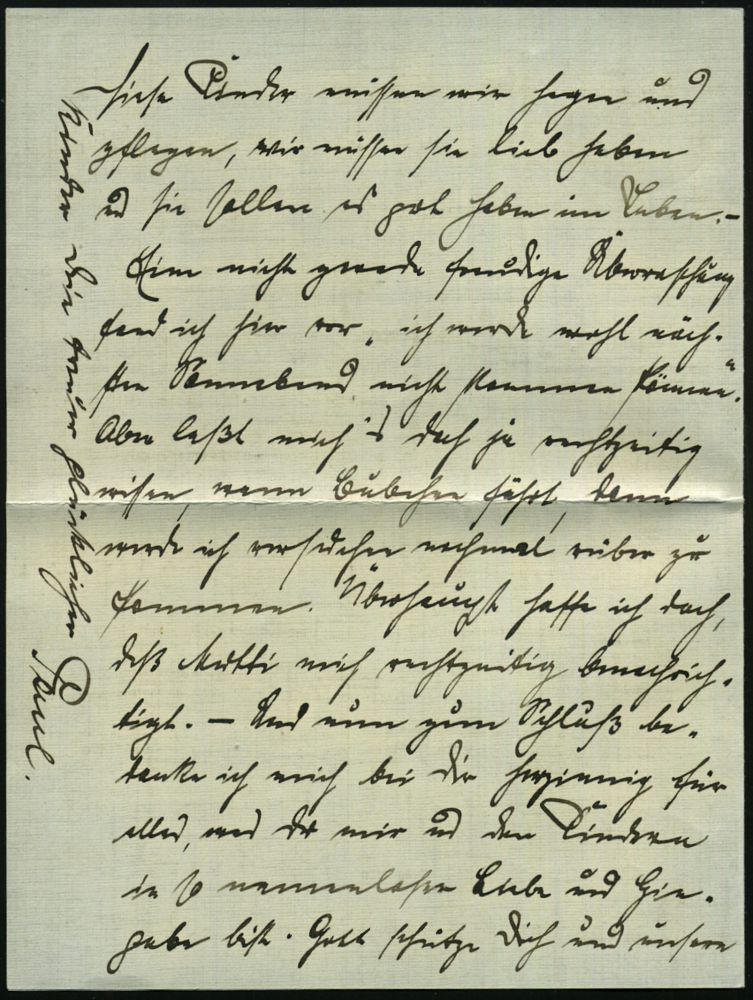 diese Kinder müssen wir hegen und
pflegen, wir müssen sie lieb haben
und sie sollen es gut haben im Leben. –
Eine nicht gerade freudige Überraschung
fand ich hier vor, „ich werde wohl näch-
sten Sonnabend nicht kommen können“.
Aber laßt mich's doch ja rechtzeitig
wissen, wann Bubchen fährt, dann
werde ich versuchen nochmal rüber zu
kommen. Überhaupt hoffe ich doch,
daß Mutti mich rechtzeitig benachrich-
tigt. – Und nun zum Schluß be-
danke ich mich bei Dir herzinnig für
alles, was Du mir und den Kindern
in so namenloser Liebe und Hin-
gabe bist. Gott schütze Dich und unsere
Kinder Dein treuer glücklicher Paul.